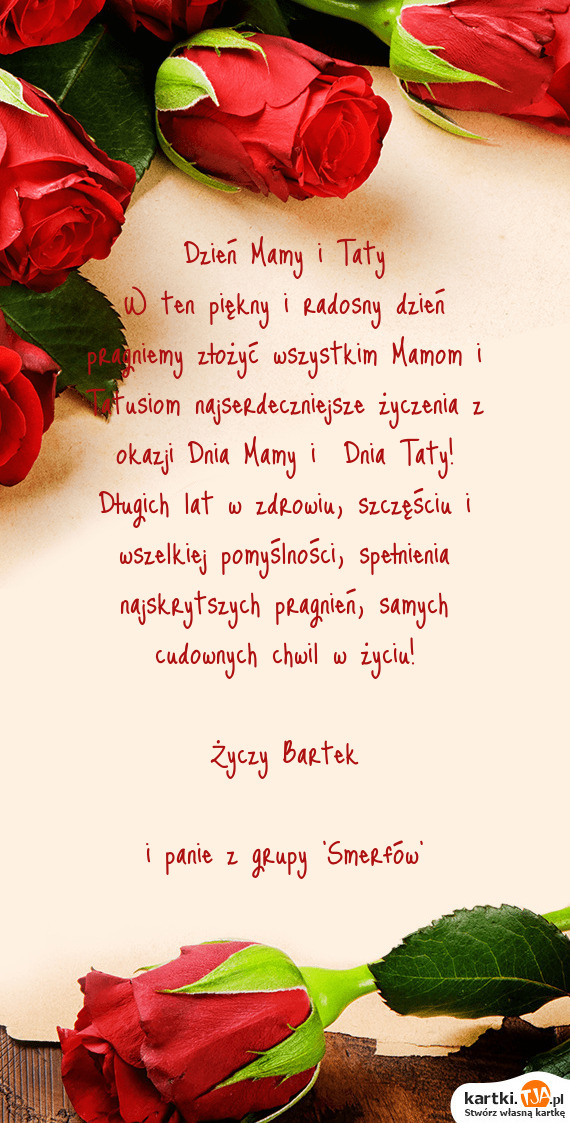 Dzień Mamy i Taty
W ten piękny i radosny dzień
pragniemy złożyć wszystkim Mamom i
Tatusiom najserdeczniejsze życzenia z
okazji Dnia Mamy i  Dnia Taty!
Długich lat w zdrowiu, szczęściu i
wszelkiej pomyślności, spełnienia
najskrytszych pragnień, samych
cudownych chwil w życiu!
Życzy Bartek
i panie z grupy 'Smerfów'
kartki.TJA.pl
Stwórz własną kartkę